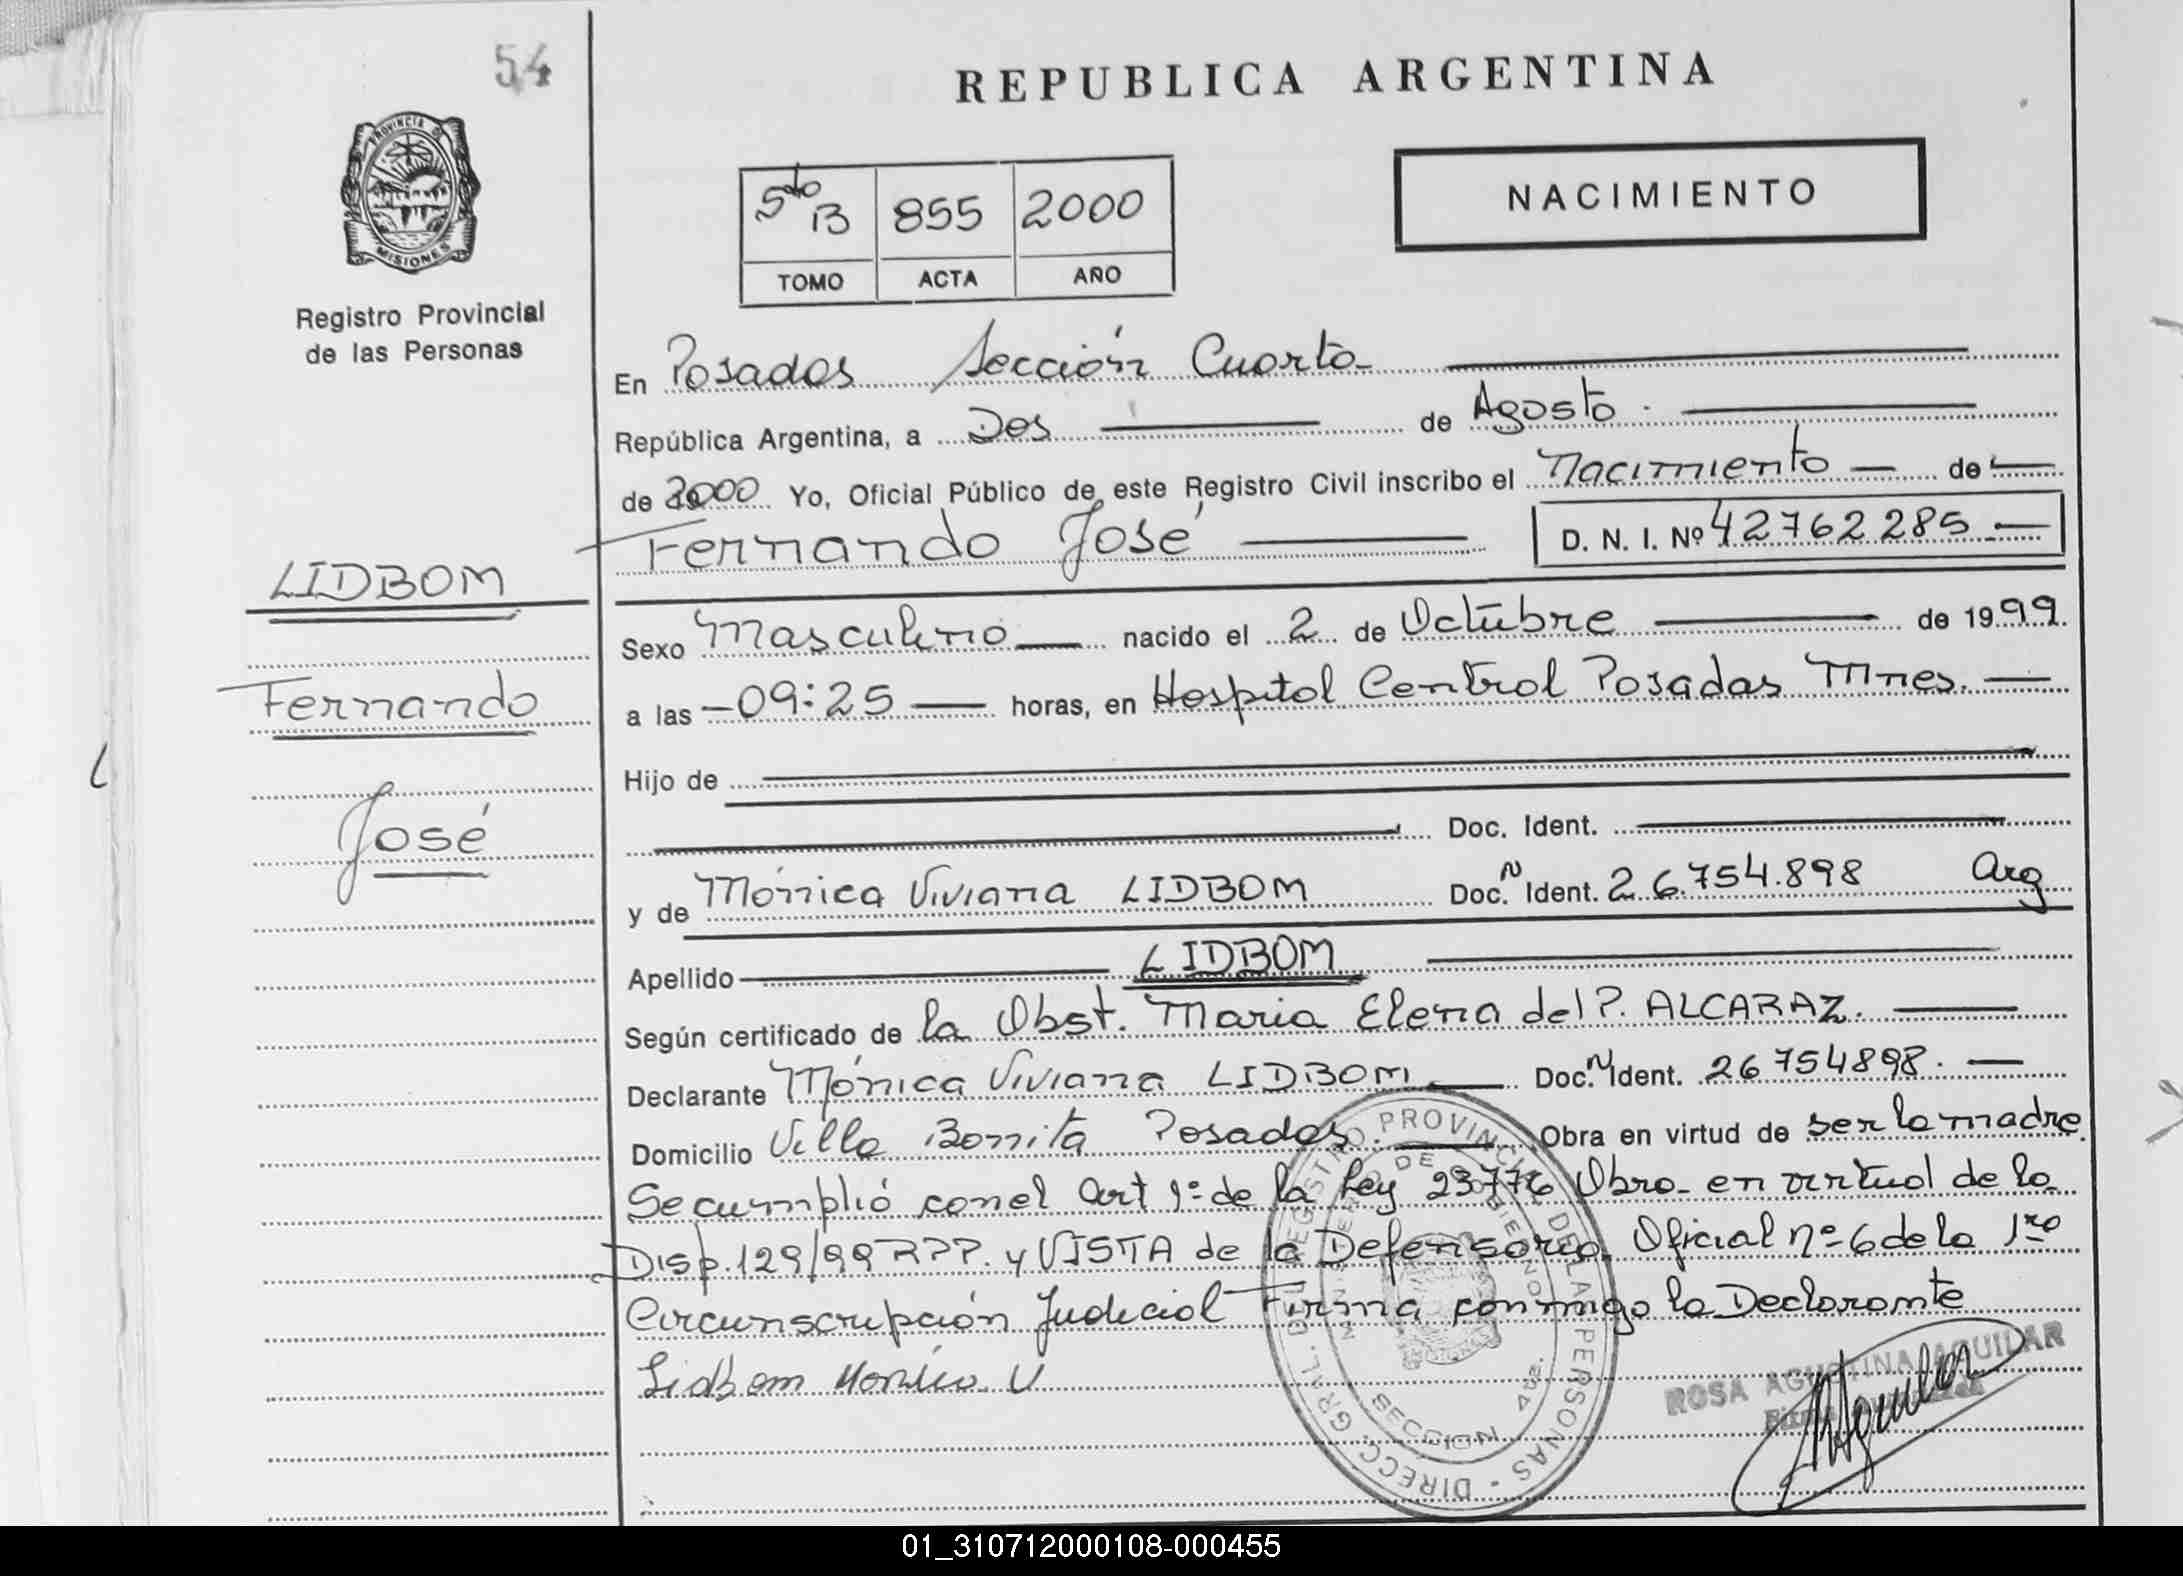 54
REPUBLICA ARGENTINA
PROVINCIA DE
MISIONES
Registro Provincial
de las Personas
NACIMIENTO
5to B 855 2000
TOMO ACTA AÑO
En Posadas Sección Cuarta
República Argentina, a Dos de Agosto
de 2000 Yo, Oficial Público de este Registro Civil inscribo el Nacimiento de
Fernando José D. N. I. Nº 42762285
LIDBOM
Fernando
José
Sexo Masculino nacido el 2 de Octubre de 1999
a las 09:25 horas, en Hospital Central Posadas Mnes.
Hijo de
Doc. Ident.
y de Mónica Viviana LIDBOM Doc. N Ident. 26.754.898 Arg
Apellido LIDBOM
Según certificado de la Obst. Maria Elena del P. ALCARAZ.
Declarante Mónica Viviana LIDBOM Doc. N Ident. 26754898.
Domicilio Villa Bonita Posadas. Obra en virtud de ser la madre.
Se cumplió con el Art 1º de la Ley 23776 Obra en virtud de la
Disp. 129/99 RPP. y VISTA de la Defensoria Oficial nº 6 de la 1ra
Circunscripción Judicial Firma conmigo la Declarante
Lidbom Monica V
DIRECC. GRAL. DEL REGISTRO PROVINCIAL DE LAS PERSONAS
MINISTERIO DE GOBIERNO
SECCION 4ta.
ROSA AGUSTINA AGUILAR
Aguilar
01_310712000108-000455